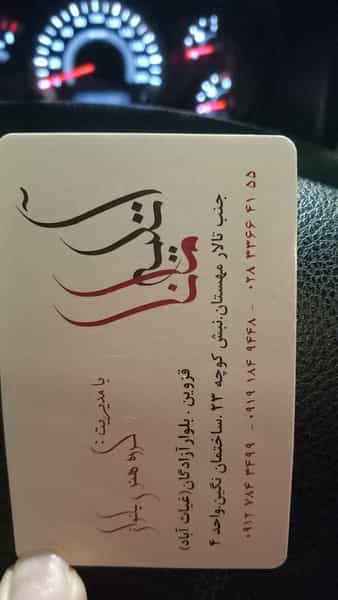 با مدیریت :
گروه هنری
قزوین . بلوار آزادگان(غیاث آباد)
جنب تالار مهستان.نبش کوچه ۲۳ .ساختمان نگین.واحد ۴
۰۹۱۲ ۷۸۴ ۳۶۹۹ - ۰۹۱۹ ۱۸۴ ۹۴۶۸ - ۰۲۸ ۳۳۶۶ ۴۱ ۵۵